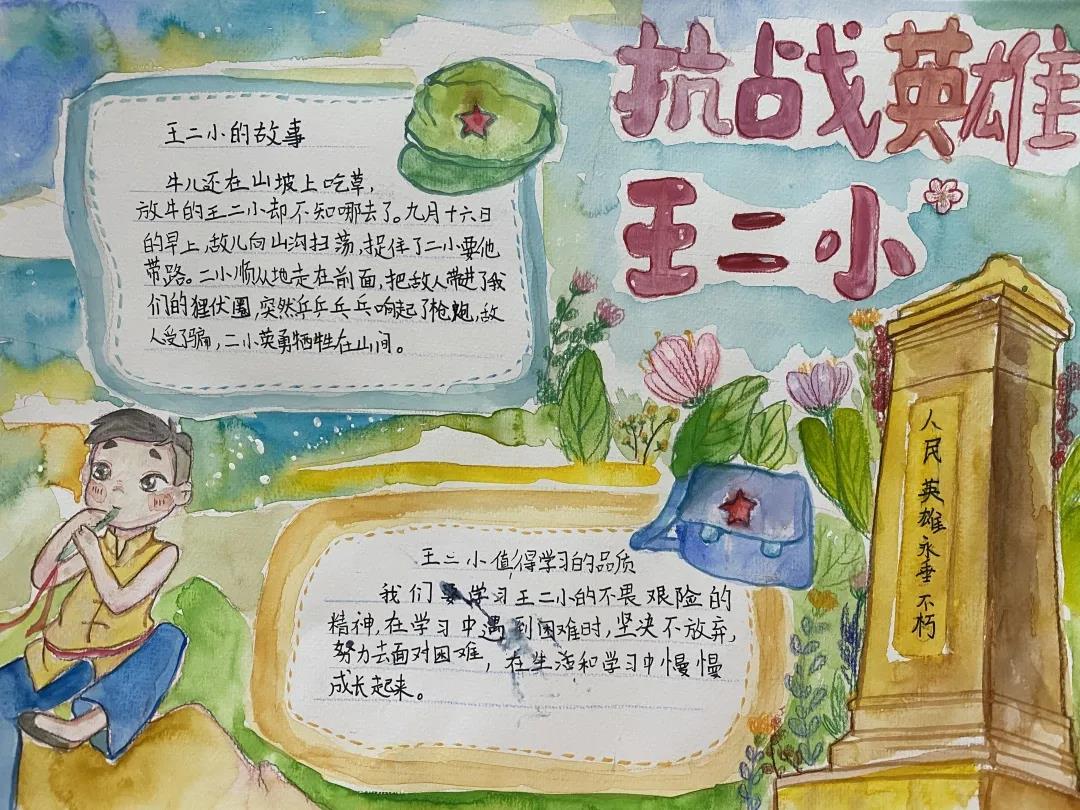 抗战英雄
王二小
王二小的故事
牛儿还在山坡上吃草,
放牛的王二小却不知哪去了。九月十六日
的早上,敌儿向山沟扫荡,捉住了二小要他
带路。二小顺从地走在前面,把敌人带进了我
们的狸伏圈,突然乒乒乓乓响起了枪炮,敌
人受了骗,二小英勇牺牲在山间。
王二小值得学习的品质
我们要学习王二小的不畏艰险的
精神,在学习中遇到困难时,坚决不放弃,
努力去面对困难,在生活和学习中慢慢
成长起来。
人民英雄永垂不朽